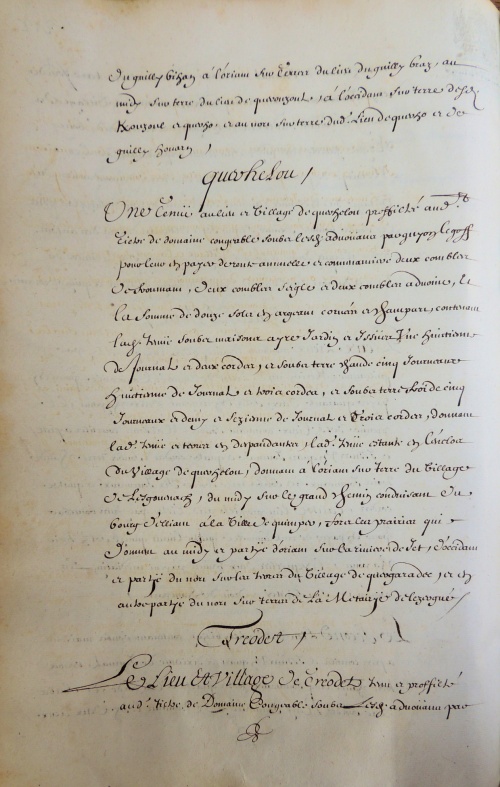 du quilly bihan à l'oriant sur terres du lieu du quilly braz, au
midy sur terre du lieu de querourouit, à l'occidant sur terre desd.
et querho et au nort sur terre dud. Lieu de querho et de
quilly houarn /
querhelou /
Une Tenüe au lieu et Village de querhelou proffitté aud.
tiltre de domaine congeable soubz lesd. advoüants par guyon le goff
pour leur en payer de rente annuelle et convenantiere deux combles
de froument, deux combles seigle et deux combles advoine, et
la somme de douze solz en argeant corvée et champart, contenant
lad. tenüe soubz maisons ayre Jardin et Issües Une huictieme
de Journal et deux cordes, et soubz terre chaude cinq Journeaux
huictieme de Journal et trois cordes, et soubz terre froide cinq
Journeaux et demy et sezieme de Journal et trois cordes, donnant
lad. tenüe et terres en dependantes, lad. tenüe estante en l'enclos
du Village de querhelou, donnant à l'oriant sur terre du Village
de Lezgoumach, du midy sur le grand chemin conduisant du
bourg d'elliant à la Ville de quimper, fors les prairies qui
donnent au midy et partye d'oriant sur la riviere de Jet, d'occidant
et partye du nort sur les terres du Village de quergaradec, et en
autre partye du nort sur terres de La Metairye de lezergué /
Treodet /
Le Lieu Et Village de Treodet tenu et proffitté
aud. tiltre de Domaine Congeable soubz Lesd. advoüants par